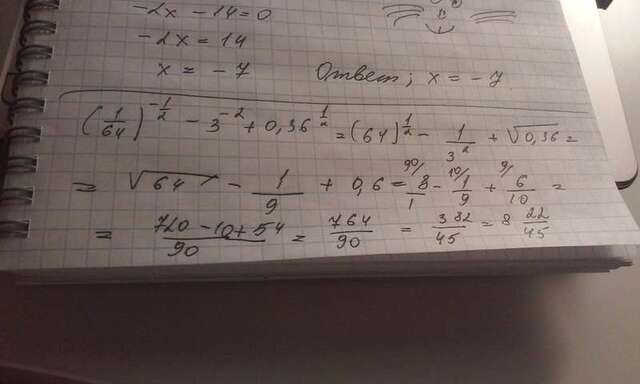 -2x - 14 = 0
-2x = 14
x = -7 Ответ; x = -7
(1/64)^(-1/2) - 3^(-2) + 0,36^(1/2) = (64)^(1/2) - 1/3^2 + √0,36 =
= √64 - 1/9 + 0,6 = 90/ 8/1 - 10/ 1/9 + 9/ 6/10 =
= (720 - 10 + 54)/90 = 764/90 = 382/45 = 8 22/45